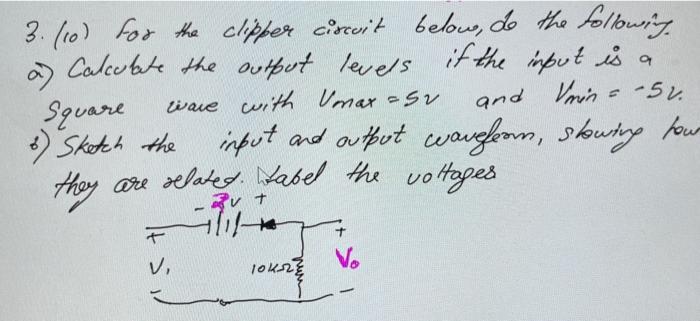 3. (10) For the clipper circuit below, do the following.
a) Calculate the output levels if the input is a
Square wave with Vmax = 5V and Vmin = -5V.
b) Sketch the input and output waveform, showing how
they are related. Label the voltages
- 2V +
+ +
Vi 10KΩ Vo
- -